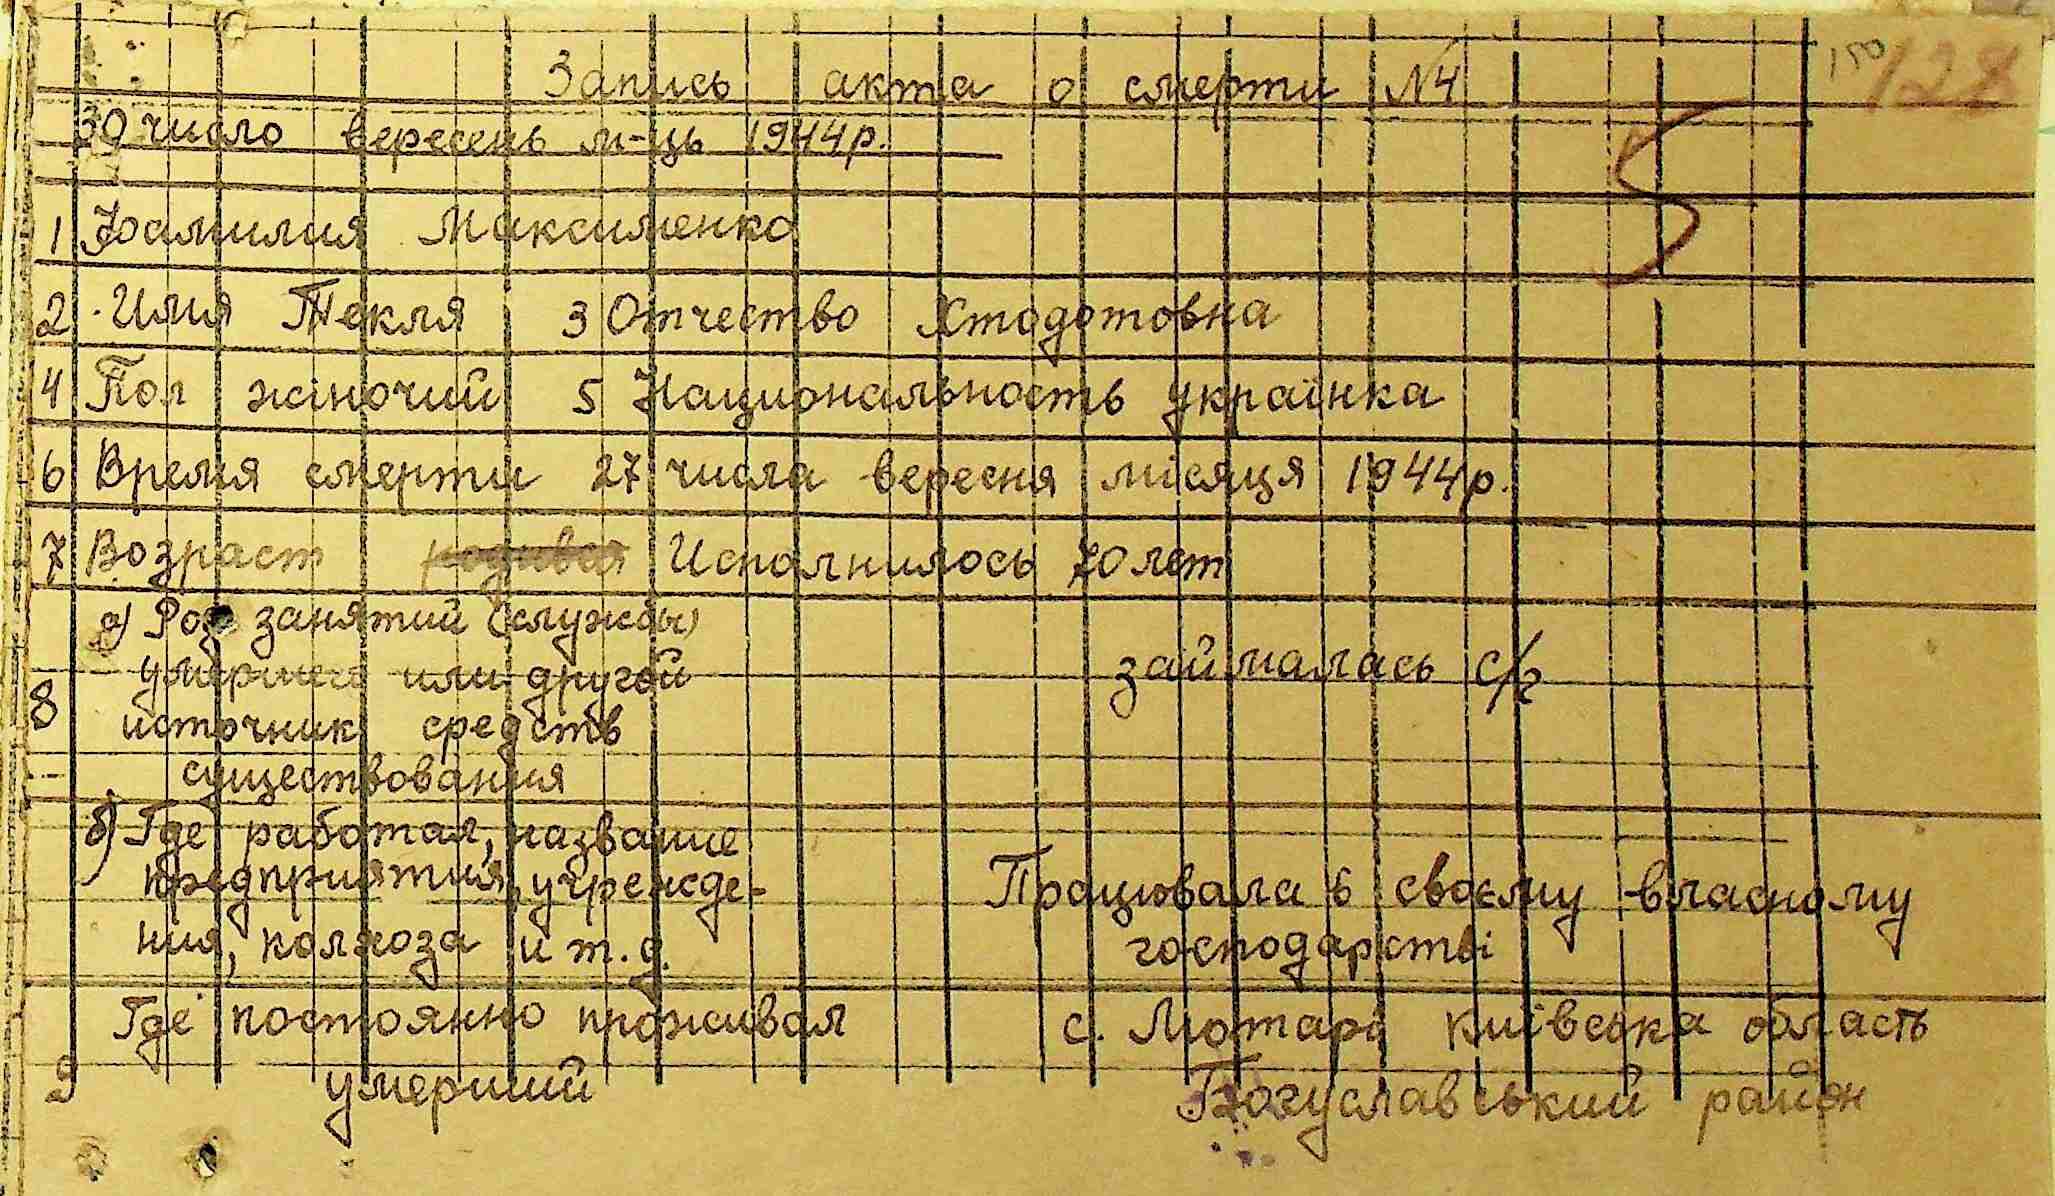 150 128
Запись акта о смерти №4
30 число вересень м-ць 1944р.
1 Фамилия Максименко
2 Имя Текля 3 Отчество Хтодотовна
4 Пол жіночий 5 Национальность українка
6 Время смерти 27 числа вересня місяця 1944р.
7 Возраст родився Исполнилось 70 лет
а) Род занятий (службы)
умершего или другой займалась с/г
8 источник средств
существования
б) Где работал, название
предприятия, учрежде- Працювала в своєму власному
ния, колхоза и т.д. господарстві
Где постоянно проживал с. Мютарі Київська область
9 умерший Богуславський район